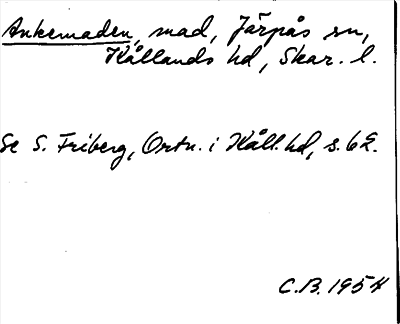 Ankemaden, mad, Järpås sn,
Kållands hd, Skar. l.
Se S. Friberg, Ortn. i Kåll. hd, s. 62.
C.B. 1954